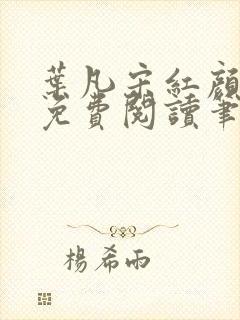 葉凡宋紅顏
免費閱讀筆
楊希雨